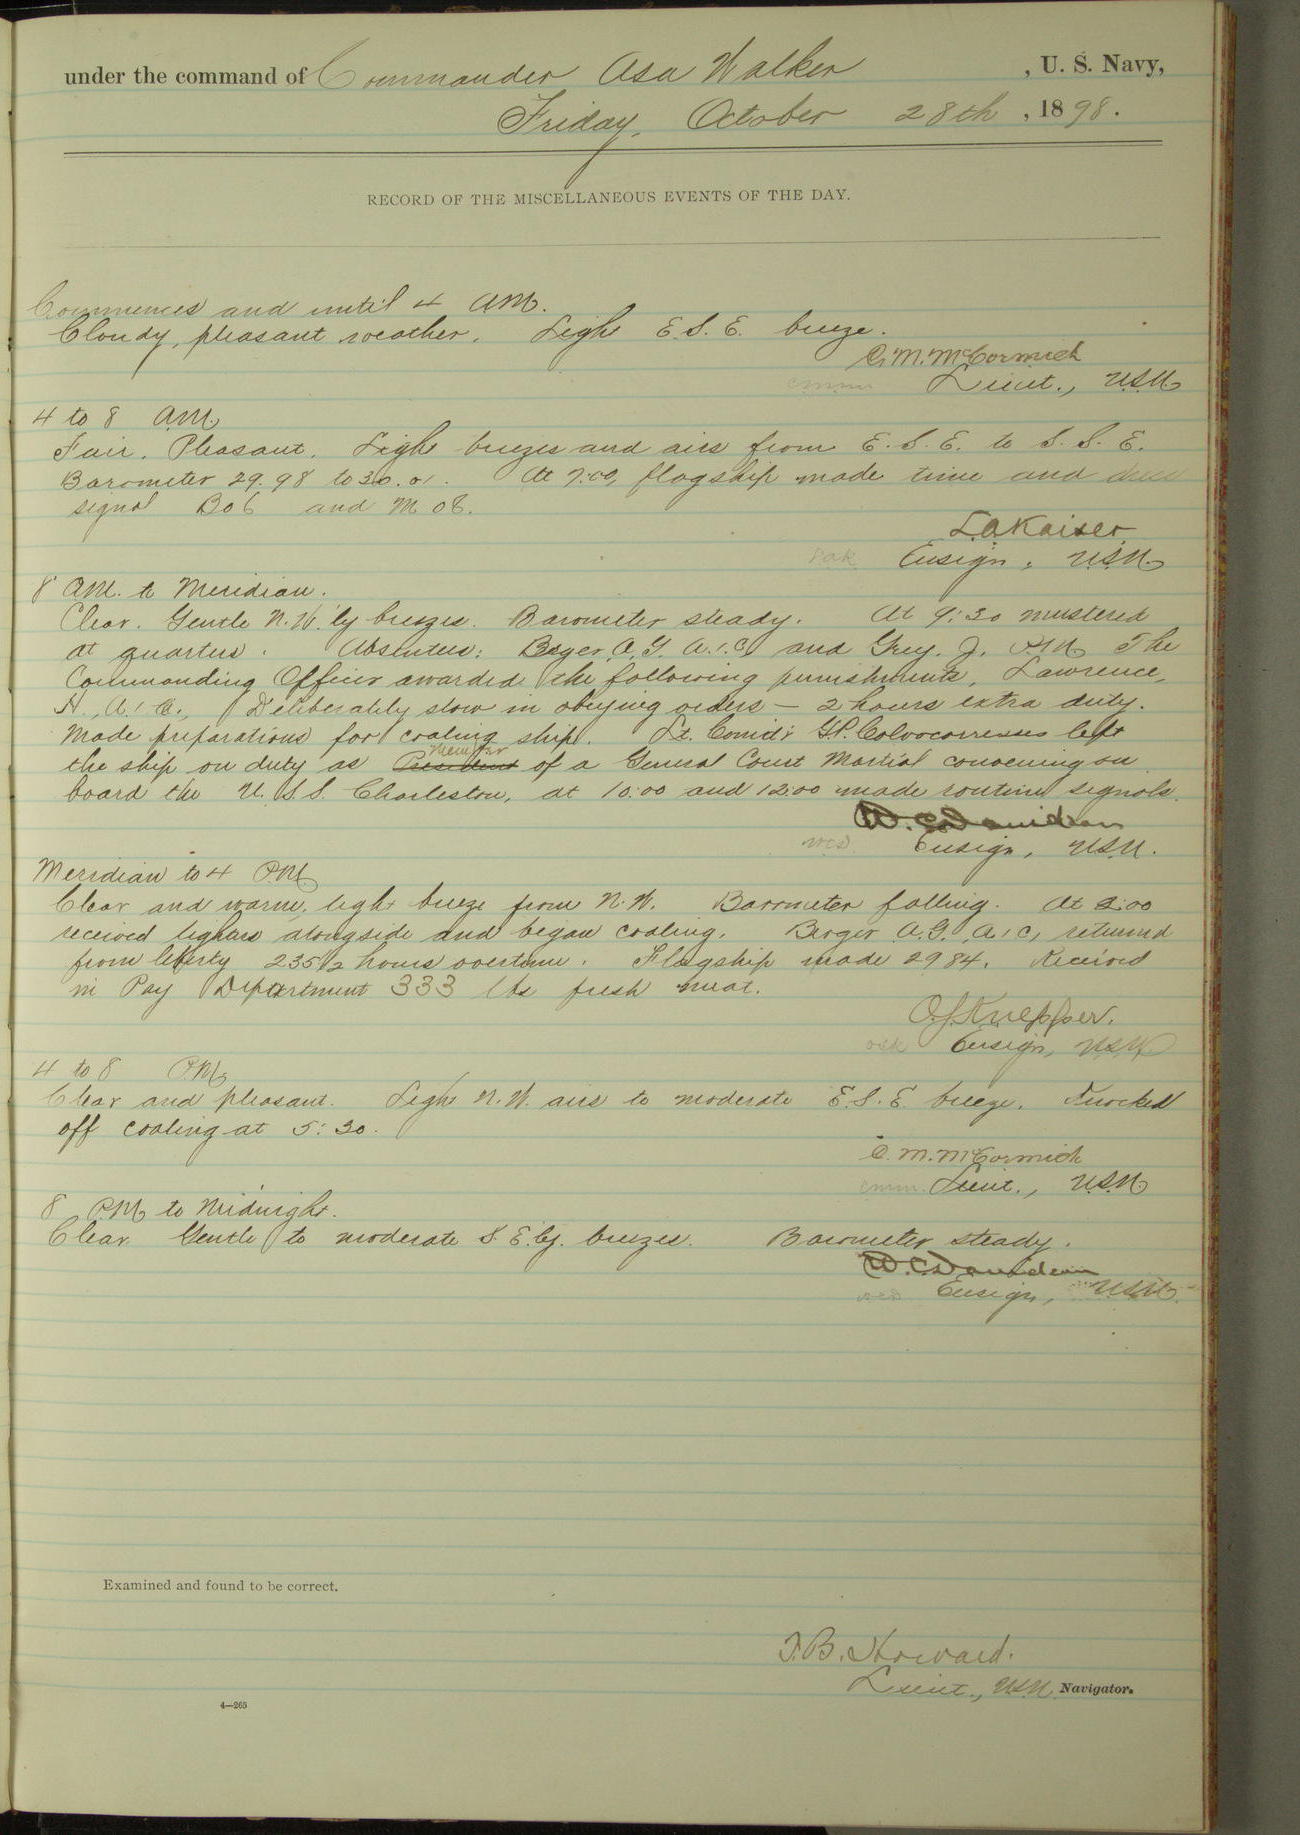 under the command of Commander Asa Walker, U. S. Navy,
Friday, October 28th, 1898.
RECORD OF THE MISCELLANEOUS EVENTS OF THE DAY.
Commences and until 4 AM.
Cloudy, pleasant weather. Light E.S.E. breeze.
C.M.McCormick
cmm Lieut., USN
4 to 8 AM
Fair. Pleasant. Light breezes and airs from E.S.E. to S.S.E.
Barometer 29.98 to 30.01. At 7:00, flagship made time and dress
signal Bob and M ob.
L.A Kaiser
lak Ensign, USN
8 AM. to Meridian.
Clear. Gentle N.W.'ly breezes. Barometer steady. At 9:30 mustered
at quarters. Absentees: A.G. A.1.C. and Grey. J. The
Commanding Officer awarded the following punishments, Lawrence,
H., A.1.C., Deliberately slow in obeying orders — 2 hours extra duty.
Made preparations for coaling ship. Lt. Comd'r G.P. Colvocoresses left
member
the ship on duty as President of a General Court Martial convening on
board the U.S.S. Charleston, at 10:00 and 12:00 made routine signals.
W.C. Davidson
wcd Ensign, USN.
Meridian to 4 PM
Clear and warm, light breeze from N.W. Barometer falling. At 2:00
received lighters alongside and began coaling. Berger A.G. A.1C, returned
from liberty 235 1/2 hours overtime. Flagship made 2984. Received
in Pay Department 333 lbs fresh meat.
O.S. Knepper.
osk Ensign, USN
4 to 8 PM
Clear and pleasant. Light N.W. airs to moderate E.S.E. breeze. Knocked
off coaling at 5:30.
C.M.McCormick
cmm. Lieut., USN
8 PM to Midnight.
Clear Gentle to moderate S.E.ly. breezes. Barometer steady.
W.C. Davidson
wcd Ensign, USN.
Examined and found to be correct.
T.B. Howard.
Lieut., USN Navigator.
4—265